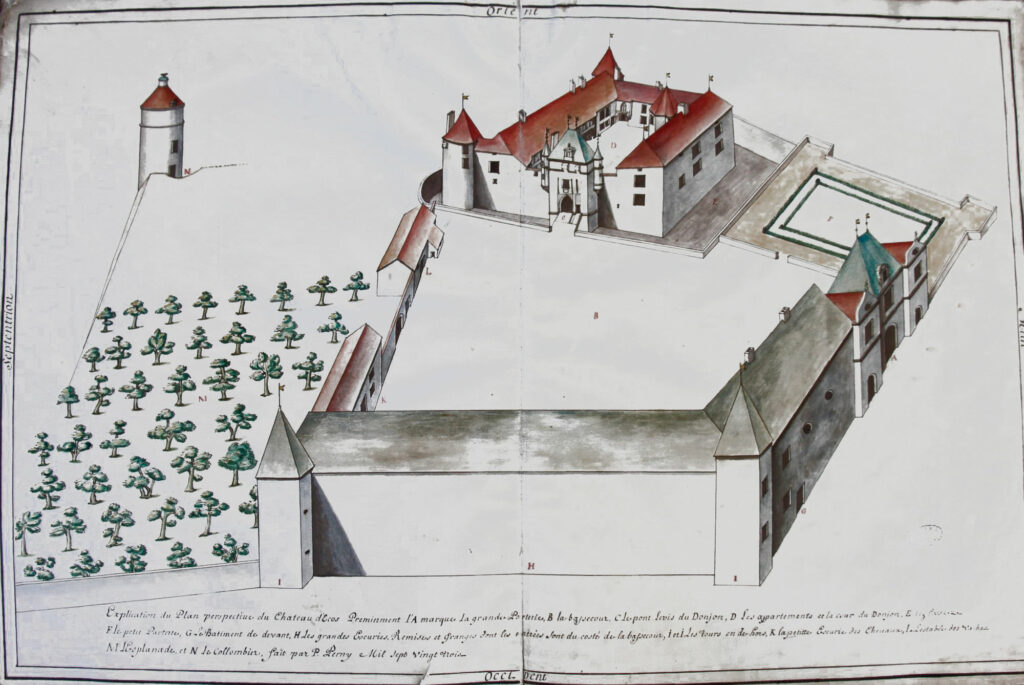 Orient
Septentrion
N
D
E
C
F
L
B
A
M
K
G
H
I
I
Explication du Plan perspective du Chateau d'Ecos Preminment l'A marque la grande Porterie, B la bassecour, C le pont levis du Donjon, D Les appartements et la cour du Donjon, E
F le petit Parterre, G le Batiment de devant, H les grandes Ecuries, Remises et Granges dont les entrées sont du costé de la bassecour, I et I les tours en dehors, K la petitte Ecurie des Chevaux, L Lestable des Vaches
M l'Esplanade, et N le Collombier, fait par P. Perny Mil sept vingt trois
Occident